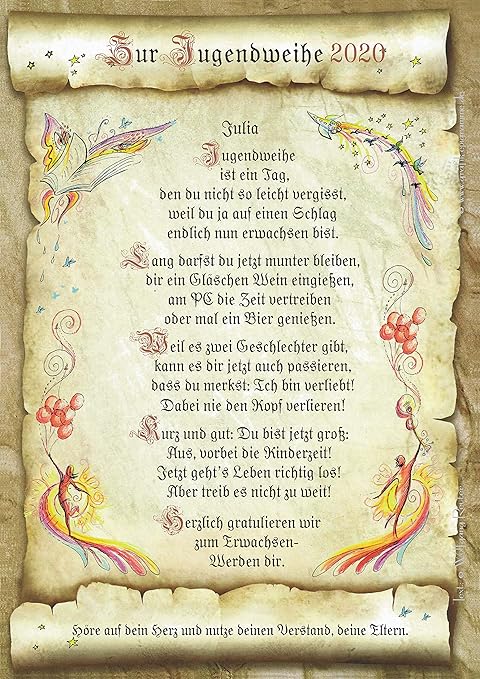 Zur Jugendweihe 2020
Julia
Jugendweihe
ist ein Tag,
den du nicht so leicht vergisst,
weil du ja auf einen Schlag
endlich nun erwachsen bist.
Lang darfst du jetzt munter bleiben,
dir ein Gläschen Wein eingießen,
am PC die Zeit vertreiben
oder mal ein Bier genießen.
Weil es zwei Geschlechter gibt,
kann es dir jetzt auch passieren,
dass du merkst: Ich bin verliebt!
Dabei nie den Kopf verlieren!
Kurz und gut: Du bist jetzt groß:
Aus, vorbei die Kinderzeit!
Jetzt geht's Leben richtig los!
Aber treib es nicht zu weit!
Herzlich gratulieren wir
zum Erwachsen-
Werden dir.
Höre auf dein Herz und nutze deinen Verstand, deine Eltern.